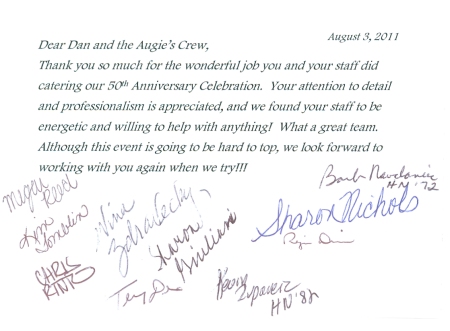 August 3, 2011
Dear Dan and the Augie's Crew,
Thank you so much for the wonderful job you and your staff did
catering our 50th Anniversary Celebration. Your attention to detail
and professionalism is appreciated, and we found your staff to be
energetic and willing to help with anything! What a great team.
Although this event is going to be hard to top, we look forward to
working with you again when we try!!!
Megan
Reed
Barb
HN '72
Lynn
Tomblin
Nina
Sharon Nichols
Sharon
Giuliani
CHRIS
KING
Terry
HN '82